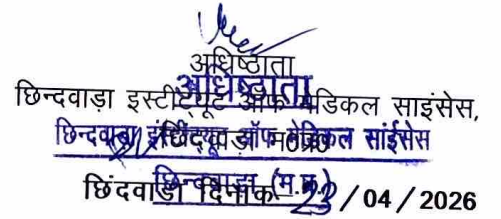 अधिष्ठाता
अधिष्ठाता
छिन्दवाड़ा इस्टीट्यूट ऑफ मेडिकल साइंसेस,
छिन्दवाड़ा इंस्टिट्यूट ऑफ मेडिकल साईंसेस
छिंदवाड़ा म0प्र0
छिन्दवाड़ा (म.प्र.)
छिंदवाड़ा दिनांक 23/04/2026